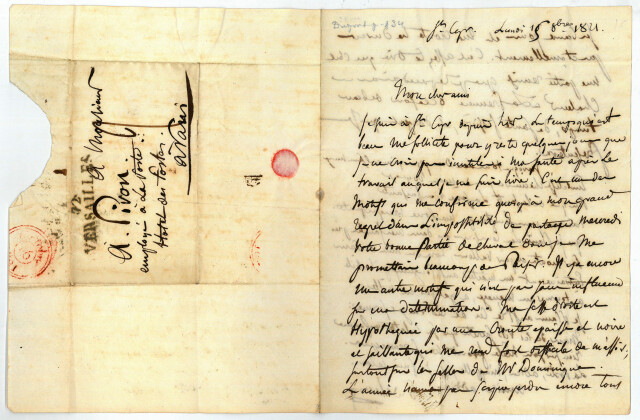 A Monsieur
A Pivon
employé à la Poste
Hôtel des Postes
à Paris
VERSAILLES
St Cyr. Lundi 15 8bre 1821.
Mon cher ami
Je suis à St Cyr depuis hier. Le temps qui est
beau me sollicite pour y rester quelques jours que
je crois pas inutiles à ma santé après le
travail auquel je me suis livré. C'est un des
motifs qui me confirme quoiqu'à mon grand
regret dans l'impossibilité de partager mercredi
votre bonne partie de cheval dont je me
promettais beaucoup de plaisir. Il y a encore
un autre motif qui n'est pas sans influence
sur ma détermination. Ma fesse droite est
hypothéquée par une croute épaisse et noire
et saillante qui me rend fort difficile de m'assoir,
surtout sur les selles de Mr Dominique.
encore tous